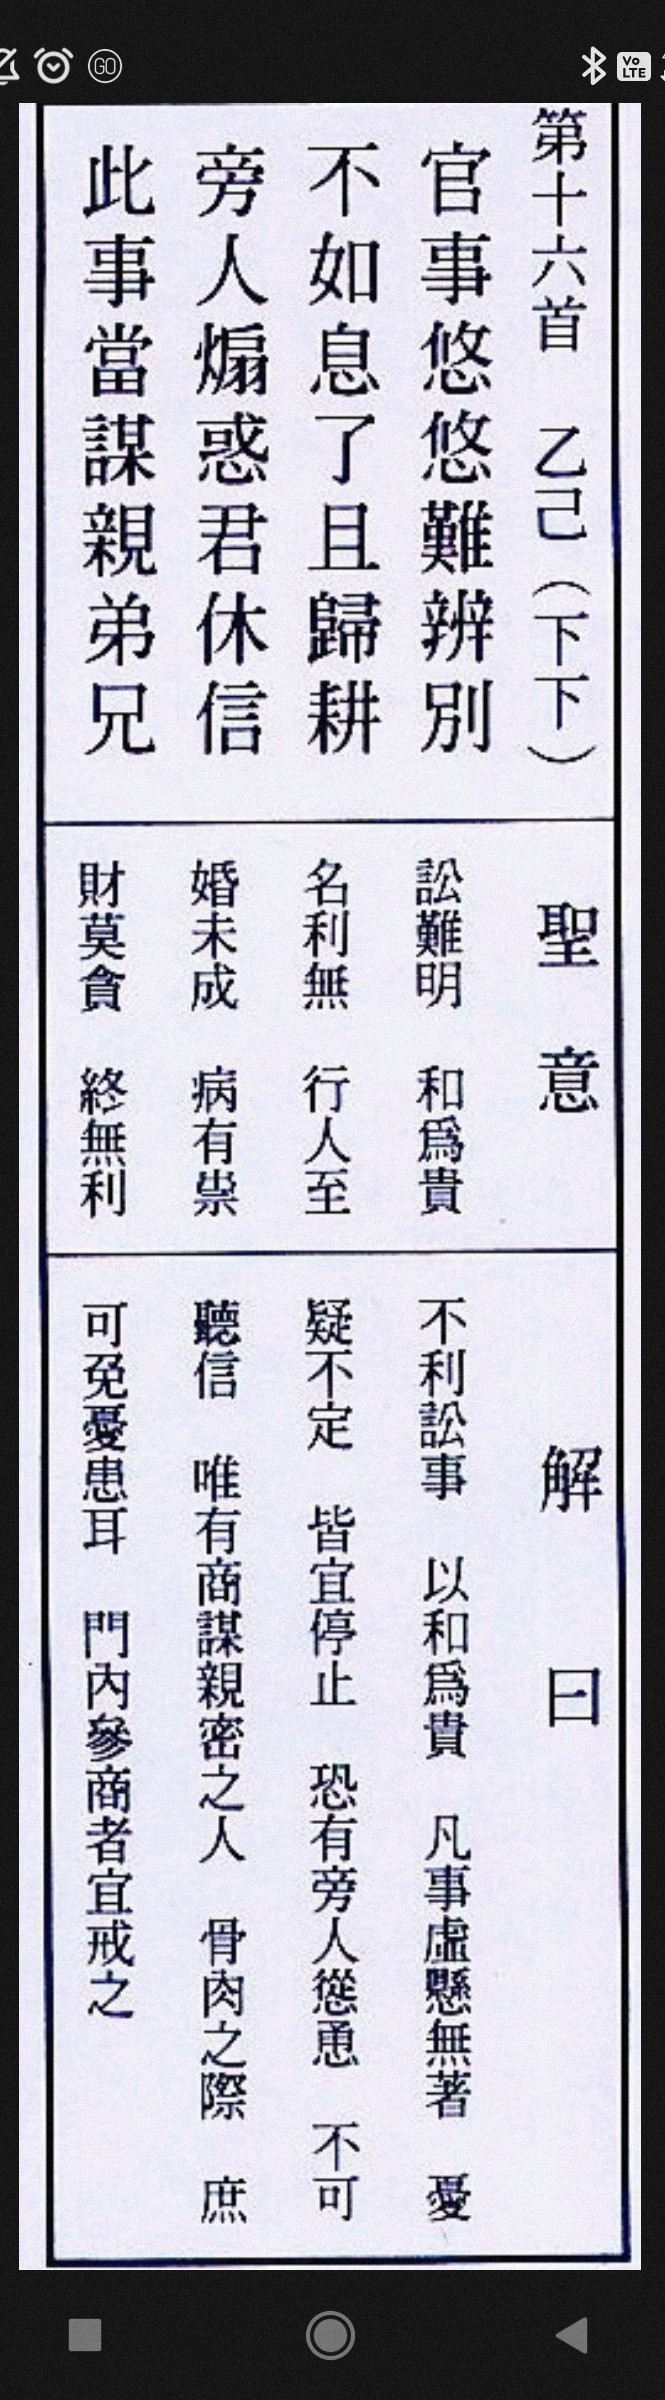 GO
Vo LTE
第十六首 乙己（下下）
官事悠悠難辨別
不如息了且歸耕
旁人煽惑君休信
此事當謀親弟兄
聖意
訟難明 和爲貴
名利無 行人至
婚未成 病有祟
財莫貪 終無利
解曰
不利訟事 以和爲貴 凡事虛懸無著 憂
疑不定 皆宜停止 恐有旁人慫恿 不可
聽信 唯有商謀親密之人 骨肉之際 庶
可免憂患耳 門內參商者宜戒之